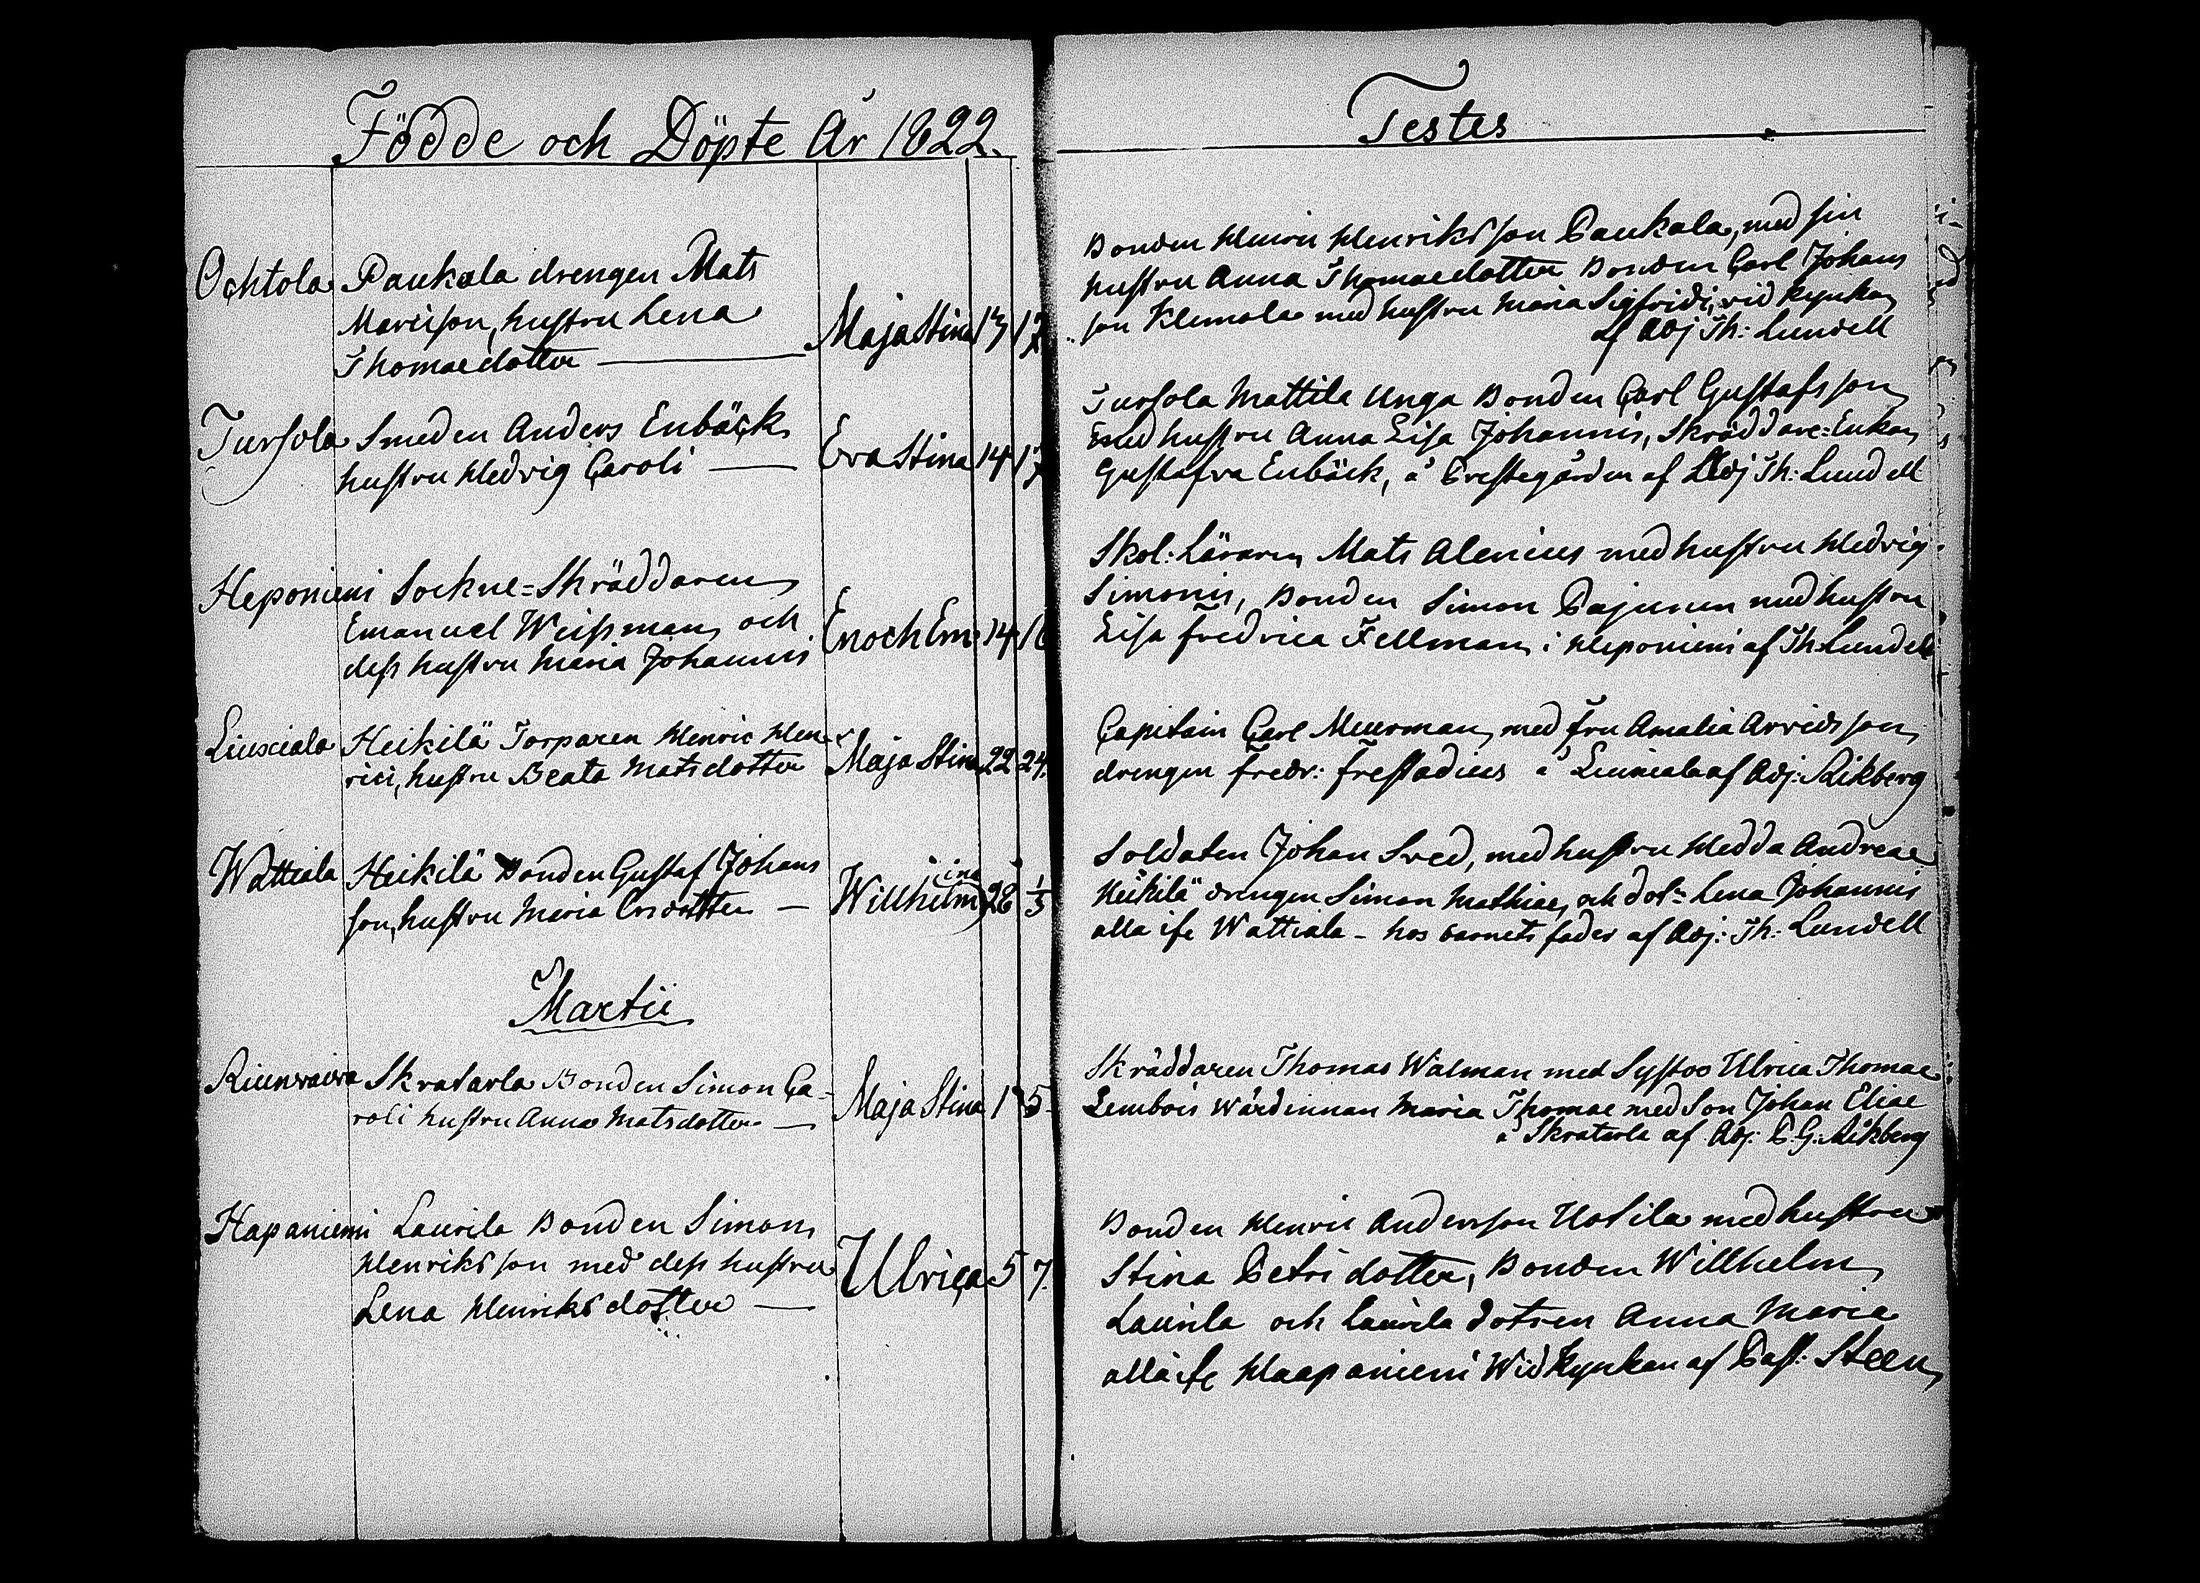 Födde och Döpte År 1822.
Ochtola Paukola drengen Mats
Marcisson, hustru Lena
Thomaedotter — Maja Stina 13 17
Tursola Smeden Anders Enbäck
hustru Hedvig Caroli — Eva Stina 14 17
Heponiemi Sockne=Skräddaren
Emanuel Weissman och
dess hustru Maria Johannis Enoch Em: 14 16
Liuxiala Heikilä Torparen Henric Hen-
rici, hustru Beata Matsdotter Maja Stina 22 24.
Wattiala Heikilä Bonden Gustaf Johans
son, hustru Maria — Willhelmina 28 1/3
Martii
Riunvaiva Skratarla Bonden Simon Ca-
roli hustru Anna Matsdotter — Maja Stina 1 5
Hapaniemi Laurila Bonden Simon
Henriksson med dess hustru
Lena Henriksdotter — Ulrica 5 7.
Testes
Bonden Henric Henriksson Paukola, med sin
hustru Anna Thomaedotter Bonden Carl Johans
son Klemola med hustru Maria Sigfridi, vid kyrkan
af Adj Th: Lundell
Tursola Mattila Unga Bonden Carl Gustafsson
med hustru Anna Lisa Johannis, Skräddare=Enkan
Gustafva Enbäck, å Prestegården af Adj Th: Lundell
Skol: Läraren Mats Alenius med hustru Hedvig
Simonis, Bonden Simon Pajunen med hustru
Lisa Fredrica Fellman i Heponiemi af Th: Lundell
Capitain Carl Meurman, med fru Amalia Arvidsson
drengen Fredr: Frestadius å Liuxiala af Adj: Aikberg
Soldaten Johan Sved, med hustru Hedda Andreae
Heikilä drengen Simon Mathiae, och dotn Lena Johannis
alla ifr Wattiala - hos barnets fader af Adj: Th: Lundell
Skräddaren Thomas Walman med Syster Ulrica Thomae
Lembois Wärdinnan Maria Thomae med Son Johan Eliae
å Skratarla af Adj. P. G. Aikberg
Bonden Henric Andersson Uotila med hustru
Stina Petri dotter, Bonden Willhelm
Laurila och Laurila dotren Anna Maria
alla ifr Haapaniemi Wid kyrkan af Past: Steen